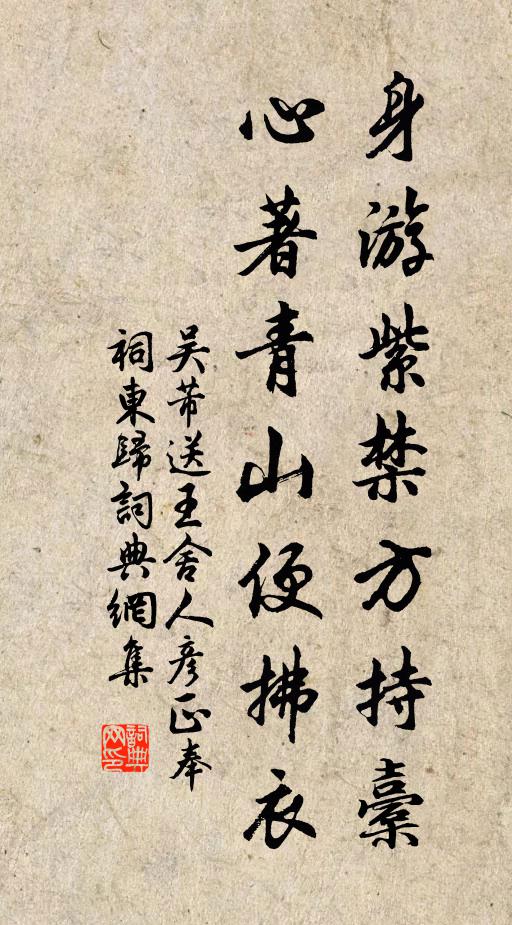 身游紫禁方持橐
心著青山便拂衣
吴芾送王舍人彦正奉
祠東歸詞典網集
詞典網印